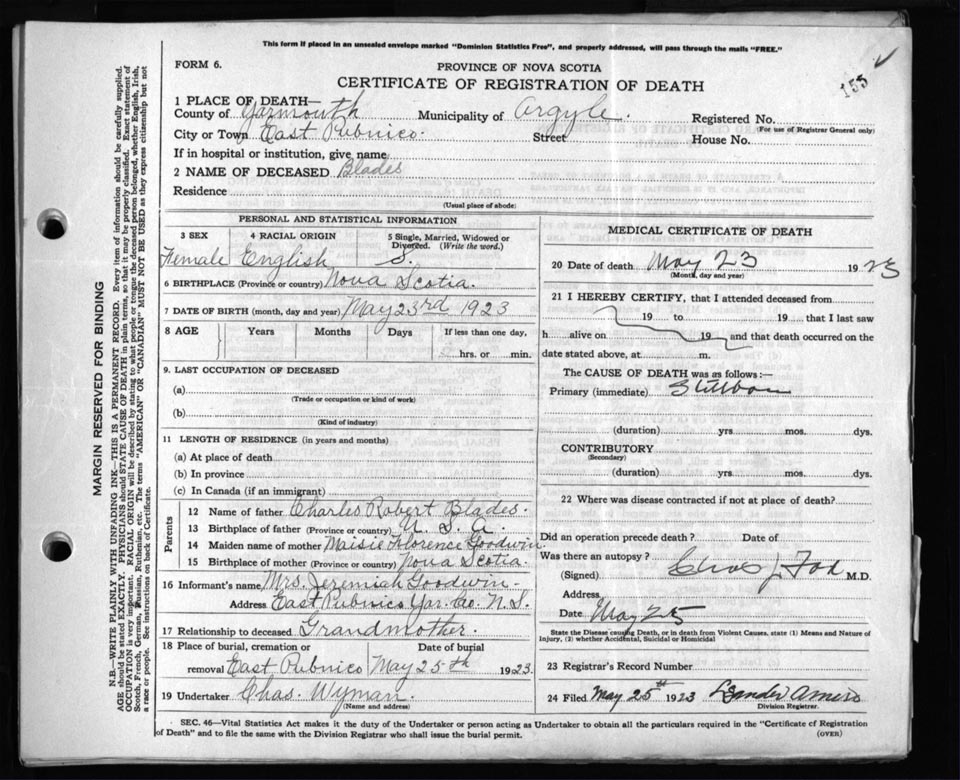 This form if placed in an unsealed envelope marked "Dominion Statistics Free", and properly addressed, will pass through the mails "FREE."
FORM 6.
PROVINCE OF NOVA SCOTIA
CERTIFICATE OF REGISTRATION OF DEATH
155
1 PLACE OF DEATH—
County of Yarmouth Municipality of Argyle. Registered No.
(For use of Registrar General only)
City or Town East Pubnico. Street House No.
If in hospital or institution, give name
2 NAME OF DECEASED Blades
Residence
(Usual place of abode)
MARGIN RESERVED FOR BINDING
N.B.—WRITE PLAINLY WITH UNFADING INK—THIS IS A PERMANENT RECORD. Every item of information should be carefully supplied.
AGE should be stated EXACTLY. PHYSICIANS should STATE CAUSE OF DEATH in plain terms, so that it may be properly classified. Exact statement of
OCCUPATION is very important. RACIAL ORIGIN will be described by stating to what people or tongue the deceased person belonged, whether English, Irish,
Scotch, French, German, Russian, Ruthenian, etc. The terms "AMERICAN" OR "CANADIAN" MUST NOT BE USED as they express citizenship but not
a race or people. See instructions on back of Certificate.
PERSONAL AND STATISTICAL INFORMATION
3 SEX 4 RACIAL ORIGIN 5 Single, Married, Widowed or Divorced. (Write the word.)
Female English S.
6 BIRTHPLACE (Province or country) Nova Scotia.
7 DATE OF BIRTH (month, day and year) May 23rd 1923
8 AGE Years Months Days If less than one day,
hrs. or min.
9. LAST OCCUPATION OF DECEASED
(a)
(Trade or occupation or kind of work)
(b)
(Kind of industry)
11 LENGTH OF RESIDENCE (in years and months)
(a) At place of death
(b) In province
(c) In Canada (if an immigrant)
Parents
12 Name of father Charles Robert Blades.
13 Birthplace of father (Province or country) U. S. A.
14 Maiden name of mother Maisie Florence Goodwin.
15 Birthplace of mother (Province or country) Nova Scotia.
16 Informant's name Mrs. Jeremiah Goodwin.
Address East Pubnico Yar. Co. N.S.
17 Relationship to deceased Grandmother.
18 Place of burial, cremation or Date of burial
removal East Pubnico May 25th 1923
19 Undertaker Chas. Wyman.
(Name and address)
MEDICAL CERTIFICATE OF DEATH
20 Date of death May 23 1923
(Month, day and year)
21 I HEREBY CERTIFY, that I attended deceased from
19 to 19 that I last saw
h alive on 19 and that death occurred on the
date stated above, at m.
The CAUSE OF DEATH was as follows:—
Primary (immediate) Stillborn
(duration) yrs mos. dys.
CONTRIBUTORY
(Secondary)
(duration) yrs. mos. dys.
22 Where was disease contracted if not at place of death?
Did an operation precede death? Date of
Was there an autopsy?
(Signed) Chas J. Fox M.D.
Address
Date May 25
State the Disease causing Death, or in death from Violent Causes, state (1) Means and Nature of
Injury, (2) whether Accidental, Suicidal or Homicidal
23 Registrar's Record Number
24 Filed May 25th 1923 Leander Amiro
Division Registrar.
SEC. 46—Vital Statistics Act makes it the duty of the Undertaker or person acting as Undertaker to obtain all the particulars required in the "Certificate of Registration
of Death" and to file the same with the Division Registrar who shall issue the burial permit.
(OVER)